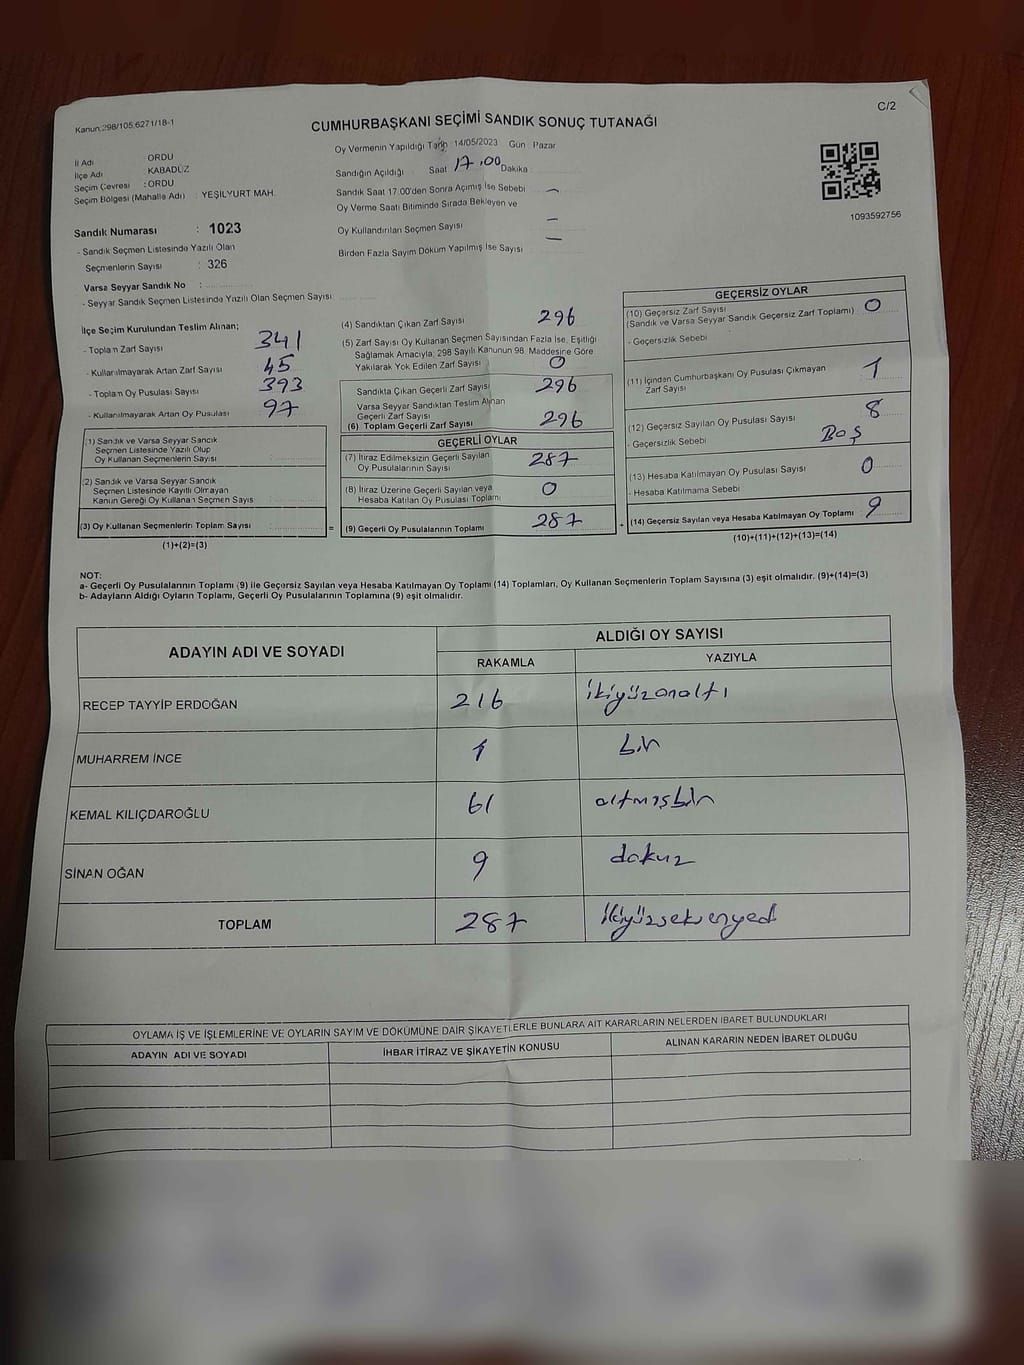 C/2
Kanun:298/105,6271/18-1
CUMHURBAŞKANI SEÇİMİ SANDIK SONUÇ TUTANAĞI
İl Adı ORDU
İlçe Adı KABADÜZ
Seçim Çevresi : ORDU
Seçim Bölgesi (Mahalle Adı) : YEŞİLYURT MAH.
Oy Vermenin Yapıldığı Tarih 14/05/2023 Gün Pazar
Sandığın Açıldığı Saat 17.00 Dakika
Sandık Saat 17.00'den Sonra Açımış İse Sebebi –
Oy Verme Saati Bitiminde Sırada Bekleyen ve
Oy Kullandırılan Seçmen Sayısı –
Birden Fazla Sayım Döküm Yapılmış İse Sayısı –
1093592756
Sandık Numarası : 1023
- Sandık Seçmen Listesinde Yazılı Olan
Seçmenlerin Sayısı : 326
Varsa Seyyar Sandık No :
- Seyyar Sandık Seçmen Listesinde Yazılı Olan Seçmen Sayısı
İlçe Seçim Kurulundan Teslim Alınan;
- Toplam Zarf Sayısı 341
- Kullanılmayarak Artan Zarf Sayısı 45
- Toplam Oy Pusulası Sayısı 393
- Kullanılmayarak Artan Oy Pusulası 97
(1) Sandık ve Varsa Seyyar Sandık
Seçmen Listesinde Yazılı Olup
Oy Kullanan Seçmenlerin Sayısı
(2) Sandık ve Varsa Seyyar Sandık
Seçmen Listesinde Kayıtlı Olmayan
Kanun Gereği Oy Kullanan Seçmen Sayıs
(3) Oy Kullanan Seçmenlerin Toplam Sayısı =
(1)+(2)=(3)
(4) Sandıktan Çıkan Zarf Sayısı 296
(5) Zarf Sayısı Oy Kullanan Seçmen Sayısından Fazla İse, Eşitliği
Sağlamak Amacıyla, 298 Sayılı Kanunun 98. Maddesine Göre
Yakılarak Yok Edilen Zarf Sayısı 0
Sandıkta Çıkan Geçerli Zarf Sayısı 296
Varsa Seyyar Sandıktan Teslim Alınan
Geçerli Zarf Sayısı
(6) Toplam Geçerli Zarf Sayısı 296
GEÇERLİ OYLAR
(7) İtiraz Edilmeksizin Geçerli Sayılan
Oy Pusulalarının Sayısı 287
(8) İtiraz Üzerine Geçerli Sayılan veya
Hesaba Katılan Oy Pusulası Toplamı 0
(9) Geçerli Oy Pusulalarının Toplamı 287 +
GEÇERSİZ OYLAR
(10) Geçersiz Zarf Sayısı
(Sandık ve Varsa Seyyar Sandık Geçersiz Zarf Toplamı) 0
- Geçersizlik Sebebi
(11) İçinden Cumhurbaşkanı Oy Pusulası Çıkmayan
Zarf Sayısı 1
(12) Geçersiz Sayılan Oy Pusulası Sayısı 8
- Geçersizlik Sebebi BOŞ
(13) Hesaba Katılmayan Oy Pusulası Sayısı 0
- Hesaba Katılmama Sebebi
(14) Geçersiz Sayılan veya Hesaba Katılmayan Oy Toplamı 9
(10)+(11)+(12)+(13)=(14)
NOT:
a- Geçerli Oy Pusulalarının Toplamı (9) ile Geçersiz Sayılan veya Hesaba Katılmayan Oy Toplamı (14) Toplamları, Oy Kullanan Seçmenlerin Toplam Sayısına (3) eşit olmalıdır. (9)+(14)=(3)
b- Adayların Aldığı Oyların Toplamı, Geçerli Oy Pusulalarının Toplamına (9) eşit olmalıdır.
ADAYIN ADI VE SOYADI ALDIĞI OY SAYISI
RAKAMLA YAZIYLA
RECEP TAYYİP ERDOĞAN 216 ikiyüzonaltı
MUHARREM İNCE 1 bir
KEMAL KILIÇDAROĞLU 61 altmışbir
SİNAN OĞAN 9 dokuz
TOPLAM 287 ikiyüzseksenyedi
OYLAMA İŞ VE İŞLEMLERİNE VE OYLARIN SAYIM VE DÖKÜMÜNE DAİR ŞİKAYETLERLE BUNLARA AİT KARARLARIN NELERDEN İBARET BULUNDUKLARI
ADAYIN ADI VE SOYADI İHBAR İTİRAZ VE ŞİKAYETİN KONUSU ALINAN KARARIN NEDEN İBARET OLDUĞU